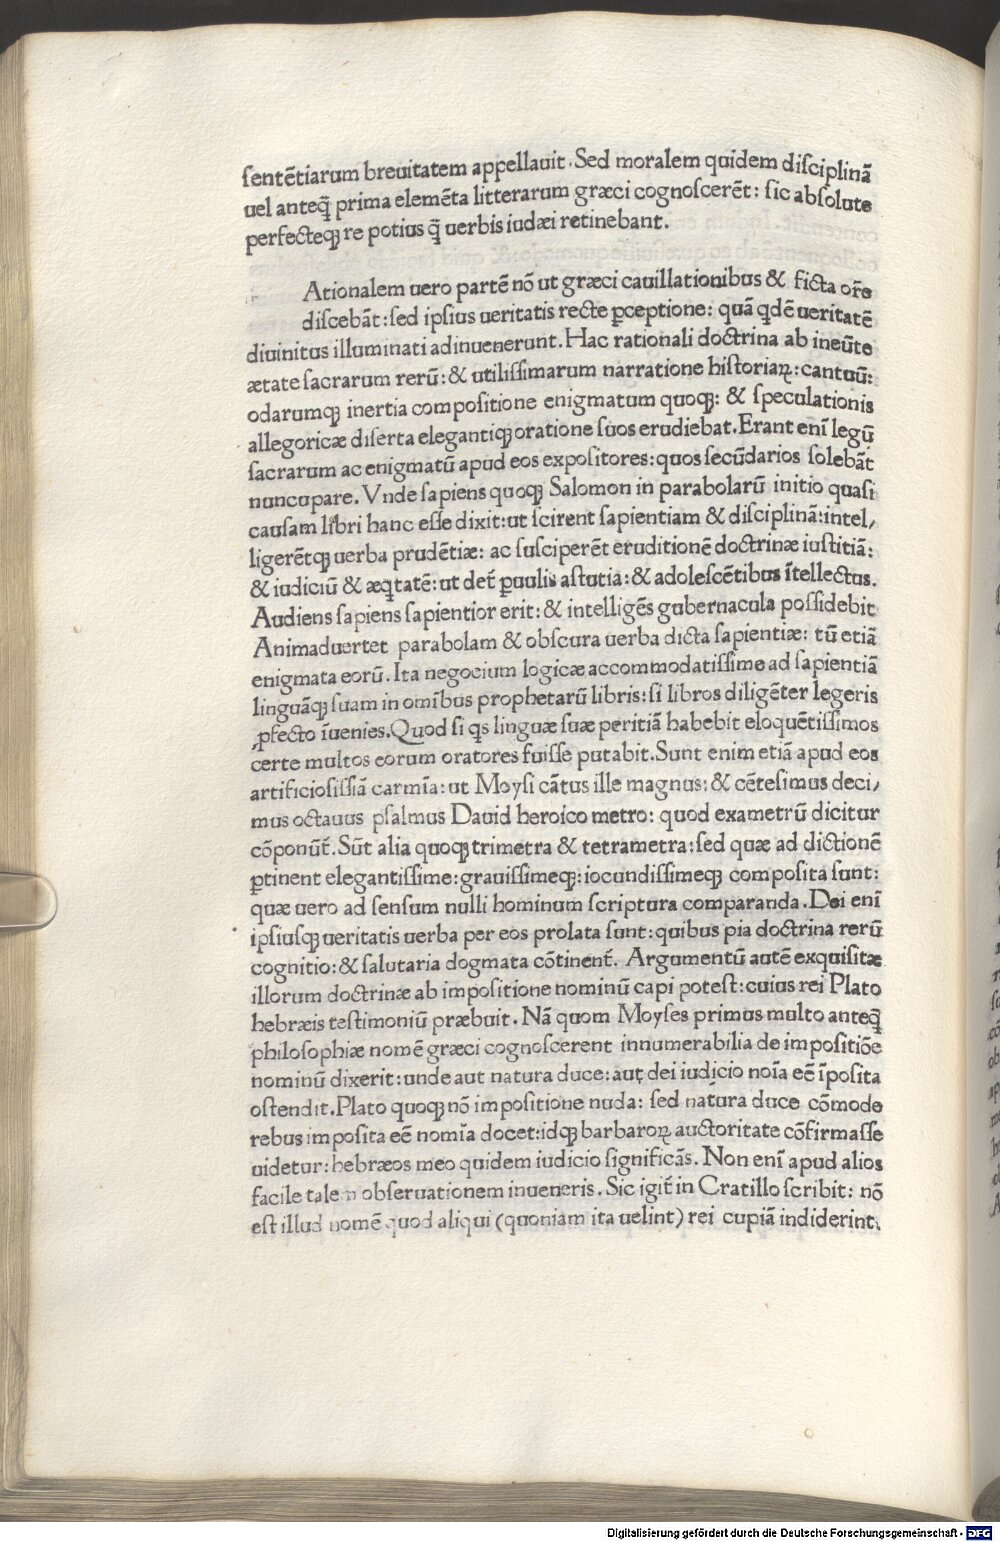 sentētiarum breuitatem appellauit. Sed moralem quidem disciplinā
uel anteq̃ prima elemēta litterarum græci cognoscerēt: sic absolute
perfecteqꝫ re potius q̃ uerbis iudæi retinebant.
Ationalem uero partē nō ut græci cauillationibus & ficta orōe
discebāt: sed ipsius ueritatis recte ꝑceptione: quā qdē ueritatē
diuinitus illuminati adinuenerunt. Hac rationali doctrina ab ineūte
ætate sacrarum rerū: & utilissimarum narratione historiaꝝ: cantuū:
odarumqꝫ inertia compositione enigmatum quoqꝫ: & speculationis
allegoricæ diserta elegantiqꝫ oratione suos erudiebat. Erant enī legū
sacrarum ac enigmatū apud eos expositores: quos secūdarios solebāt
nuncupare. Vnde sapiens quoqꝫ Salomon in parabolarū initio quasi
causam libri hanc esse dixit: ut scirent sapientiam & disciplinā: intel/
ligerētqꝫ uerba prudētiæ: ac susciperēt eruditionē doctrinæ iustitiā:
& iudiciū & æq̇tatē: ut det̃ ꝑuulis astutia: & adolescētibus ītellectus.
Audiens sapiens sapientior erit: & intelligēs gubernacula possidebit
Animaduertet parabolam & obscura uerba dicta sapientiæ: tū etiā
enigmata eorū. Ita negocium logicæ accommodatissime ad sapientiā
linguāqꝫ suam in omībus prophetarū libris: si libros diligēter legeris
ꝓfecto īuenies. Quod si q̇s linguæ suæ peritiā habebit eloquētissimos
certe multos eorum oratores fuisse putabit. Sunt enim etiā apud eos
artificiosissiā carmīa: ut Moysi cātus ille magnus: & cētesimus deci/
mus octauus psalmus Dauid heroico metro: quod exametrū dicitur
cōponūt̃. Sūt alia quoqꝫ trimetra & tetrametra: sed quæ ad dictionē
ꝑtinent elegantissime: grauissimeqꝫ: iocundissimeqꝫ composita sunt:
quæ uero ad sensum nulli hominum scriptura comparanda. Dei enī
ipsiusqꝫ ueritatis uerba per eos prolata sunt: quibus pia doctrina rerū
cognitio: & salutaria dogmata cōtinent̃. Argumentū autē exquisitæ
illorum doctrinæ ab impositione nominū capi potest: cuius rei Plato
hebræis testimoniū præbuit. Nā quom Moyses primus multo anteq̃
philosophiæ nomē græci cognoscerent innumerabilia de impositiōe
nominū dixerit: unde aut natura duce: aut dei iudicio noīa eē īposita
ostendit. Plato quoqꝫ nō impositione nuda: sed natura duce cōmode
rebus imposita eē nomīa docet: idqꝫ barbaroꝝ auctoritate cōfirmasse
uidetur: hebræos meo quidem iudicio significās. Non enī apud alios
facile talem obseruationem inueneris. Sic igit̃ in Cratillo scribit: nō
est illud nomē quod aliqui (quoniam ita uelint) rei cupiā indiderint.
Digitalisierung gefördert durch die Deutsche Forschungsgemeinschaft - DFG